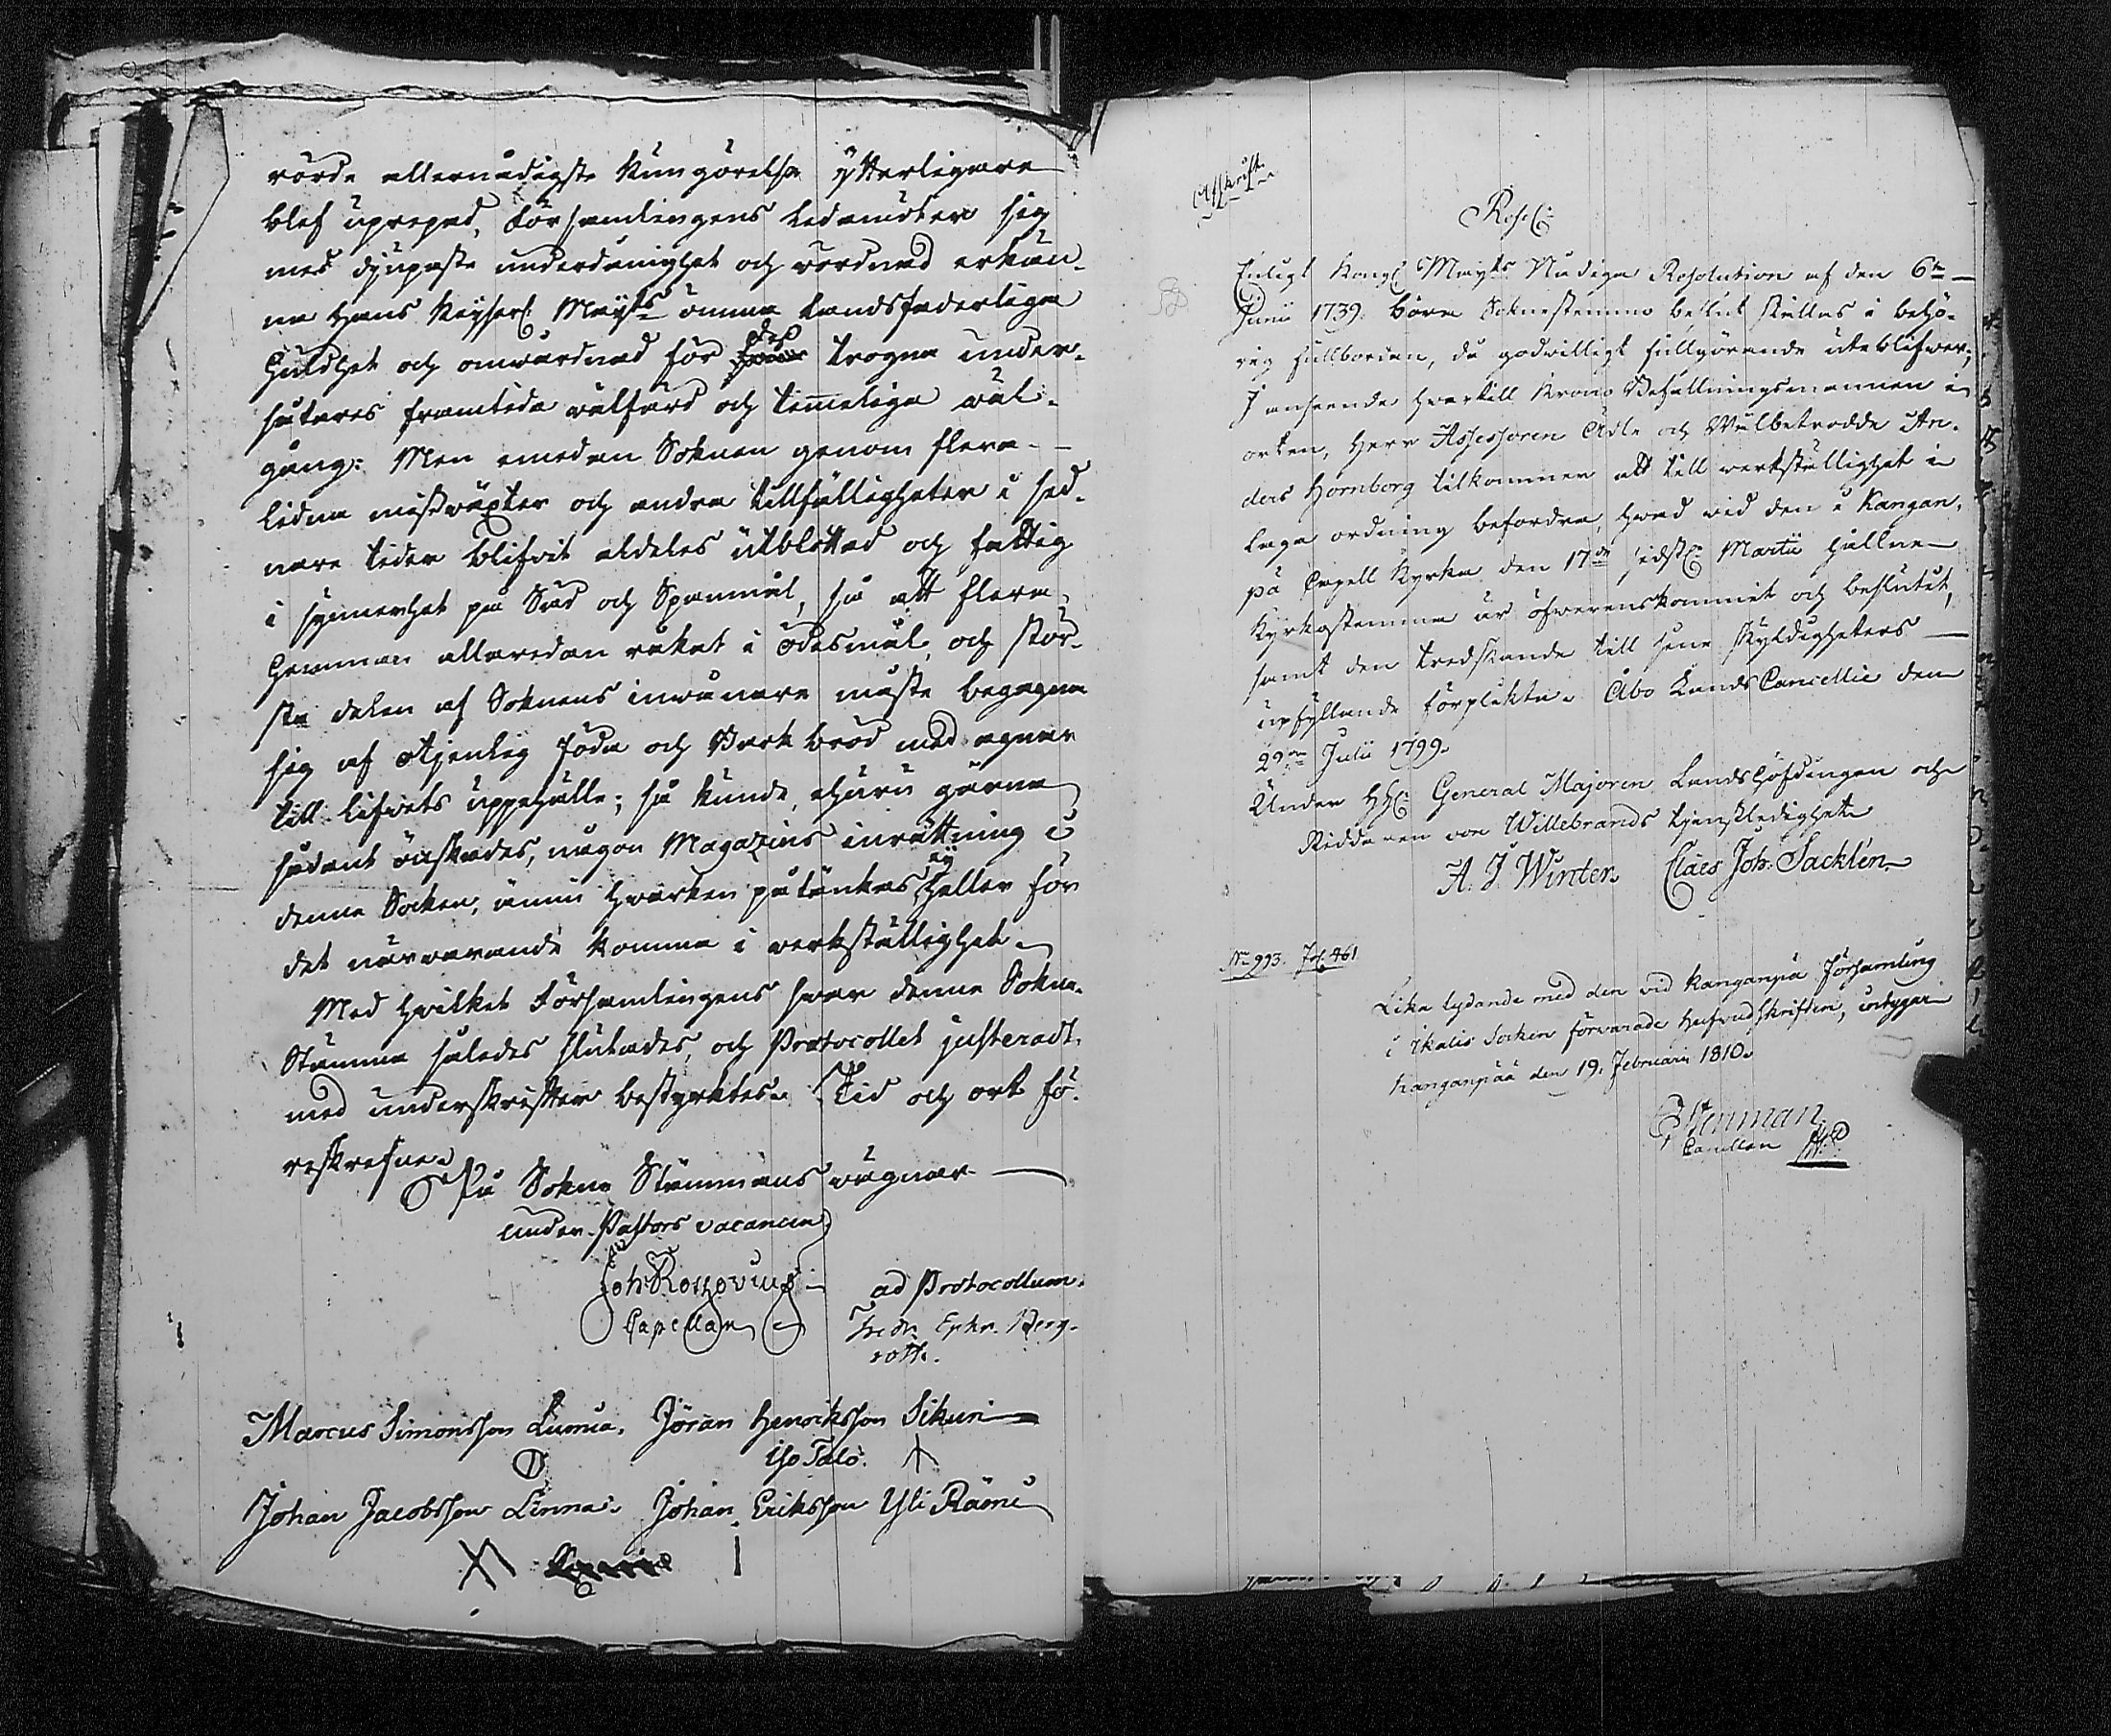 rörde allernådigste Kungörelse ÿtterligare
blef uprepad, Församlingens Ledamöter sig
med djupaste underdånighet och wördnad erkän-
na Hans Keÿserl: Maÿts ömma Landsfaderliga
Huldhet och omwårdnad för dess trogna under-
såtares framtida wälfärd och timmeliga wäl-
gång: Men emedan Soknen genom flera
lidna missväxter och andra tillfälligheter i sed-
nare tider blifvit aldeles utblottad och fattig
i synnerhet på Säd och Spanmål, så att flera
Hemman allaredan råkat i ödesmål, och stör-
sta delen af Soknens inwånare måste begagna
sig af otjenlig föda och Barkbröd med agnar
till lifvets uppehälle; så kunde, ehuru gärna
sådant önskades, någon Magazins inrättning i
denna Socken, ännu hvarken påtänkas ej heller för
det närwarande komma i werkställighet.
Med hvilket Församlingens swar denna Sokne-
Stämma således slutades, och Protocollet justeradt,
med underskrifter bestyrktes. Tid och ort fö-
reskrefne.
På Sokne Stämmans wägnar
under Pastors vacancen
Joh: Roszovius
Capellan
ad Protocollum.
Fredr. Ephr. Berg-
roth.
Marcus Simonsson Luoma. Jöran Henricksson Sikuri
Iso Talo.
Johan Jacobsson Linna. Johan Eriksson Yli Rämi
Afskrift.
Resol:
Enligt Kongl Mayts Nådiga Resolution af den 6te
Junii 1739. böra Soknestemmo beslut ställas i behö-
rig fullbordan, då godwilligt fullgörande uteblifwer;
I anseende hwartill Krono Befallningsmannen i
orten, Herr Assessoren Ädle och Wälbetrodde An-
ders Hornborg tilkommer att till werkställighet i
laga ordning befordra, hwad wid den i Kangan-
pä Capell Kyrka den 17de sidstl: Martii hållne
Kyrkostemma är öfwerenskommit och beslutet,
samt den tredskande till sine skyldigheters
upfyllande förplikta. Åbo Lands Cancellie den
29de Julii 1799.
Under HHl: General Majoren Landshöfdingen och
Riddaren von Willebrands tjenstledighet
A. J. Winter. Claes Joh. Sacklén.
No 993. Fol. 461.
Lika lydande med den vid Kanganpä Församling
i Ikalis Socken förvarade Hufvudskriften, intygar
Kanganpää den 19. Februarii 1810.
Stenman
Capellan